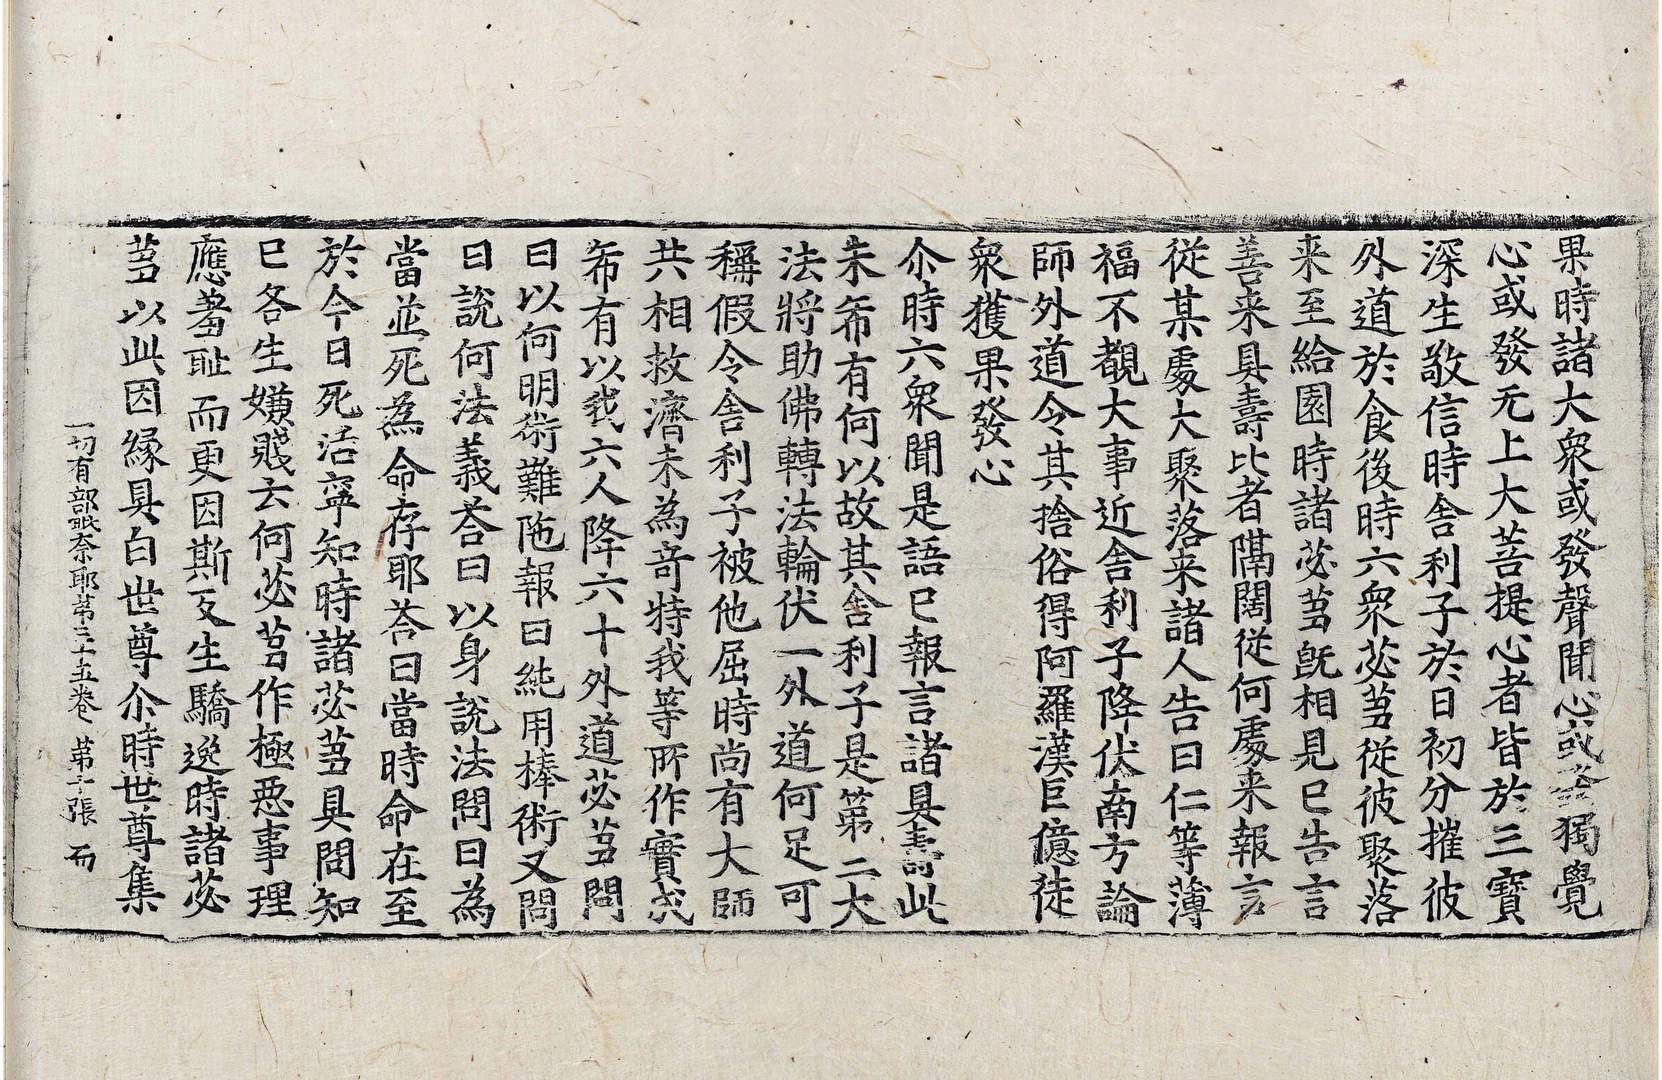 果時諸大衆或發聲聞心或發獨覺
心或發无上大菩提心者皆於三寶
深生敬信時舎利子於日初分摧彼
外道於食後時六衆苾芻従彼聚落
来至給園時諸苾芻旣相見已告言
善来具壽比者隔闊従何處来報言
従某處大聚落来諸人告曰仁等薄
福不覩大事近舎利子降伏南方論
師外道令其捨俗得阿羅漢巨億徒
衆獲果發心
尒時六衆聞是語已報言諸具壽此
未希有何以故其舎利子是第二大
法將助佛轉法輪伏一外道何足可
稱假令舎利子被他屈時尚有大師
共相救濟未為竒特我等所作實成
希有以我六人降六十外道苾芻問
曰以何明術難陁報曰純用棒術又問
曰說何法義荅曰以身說法問曰為
當並死為命存耶荅曰當時命在至
於今日死活寧知時諸苾芻具問知
已各生嫌賤云何苾芻作極惡事理
應羞耻而更因斯反生驕逸時諸苾
芻以此因縁具白世尊尒時世尊集
一切有部毗奈耶第三十五卷 第十張 而